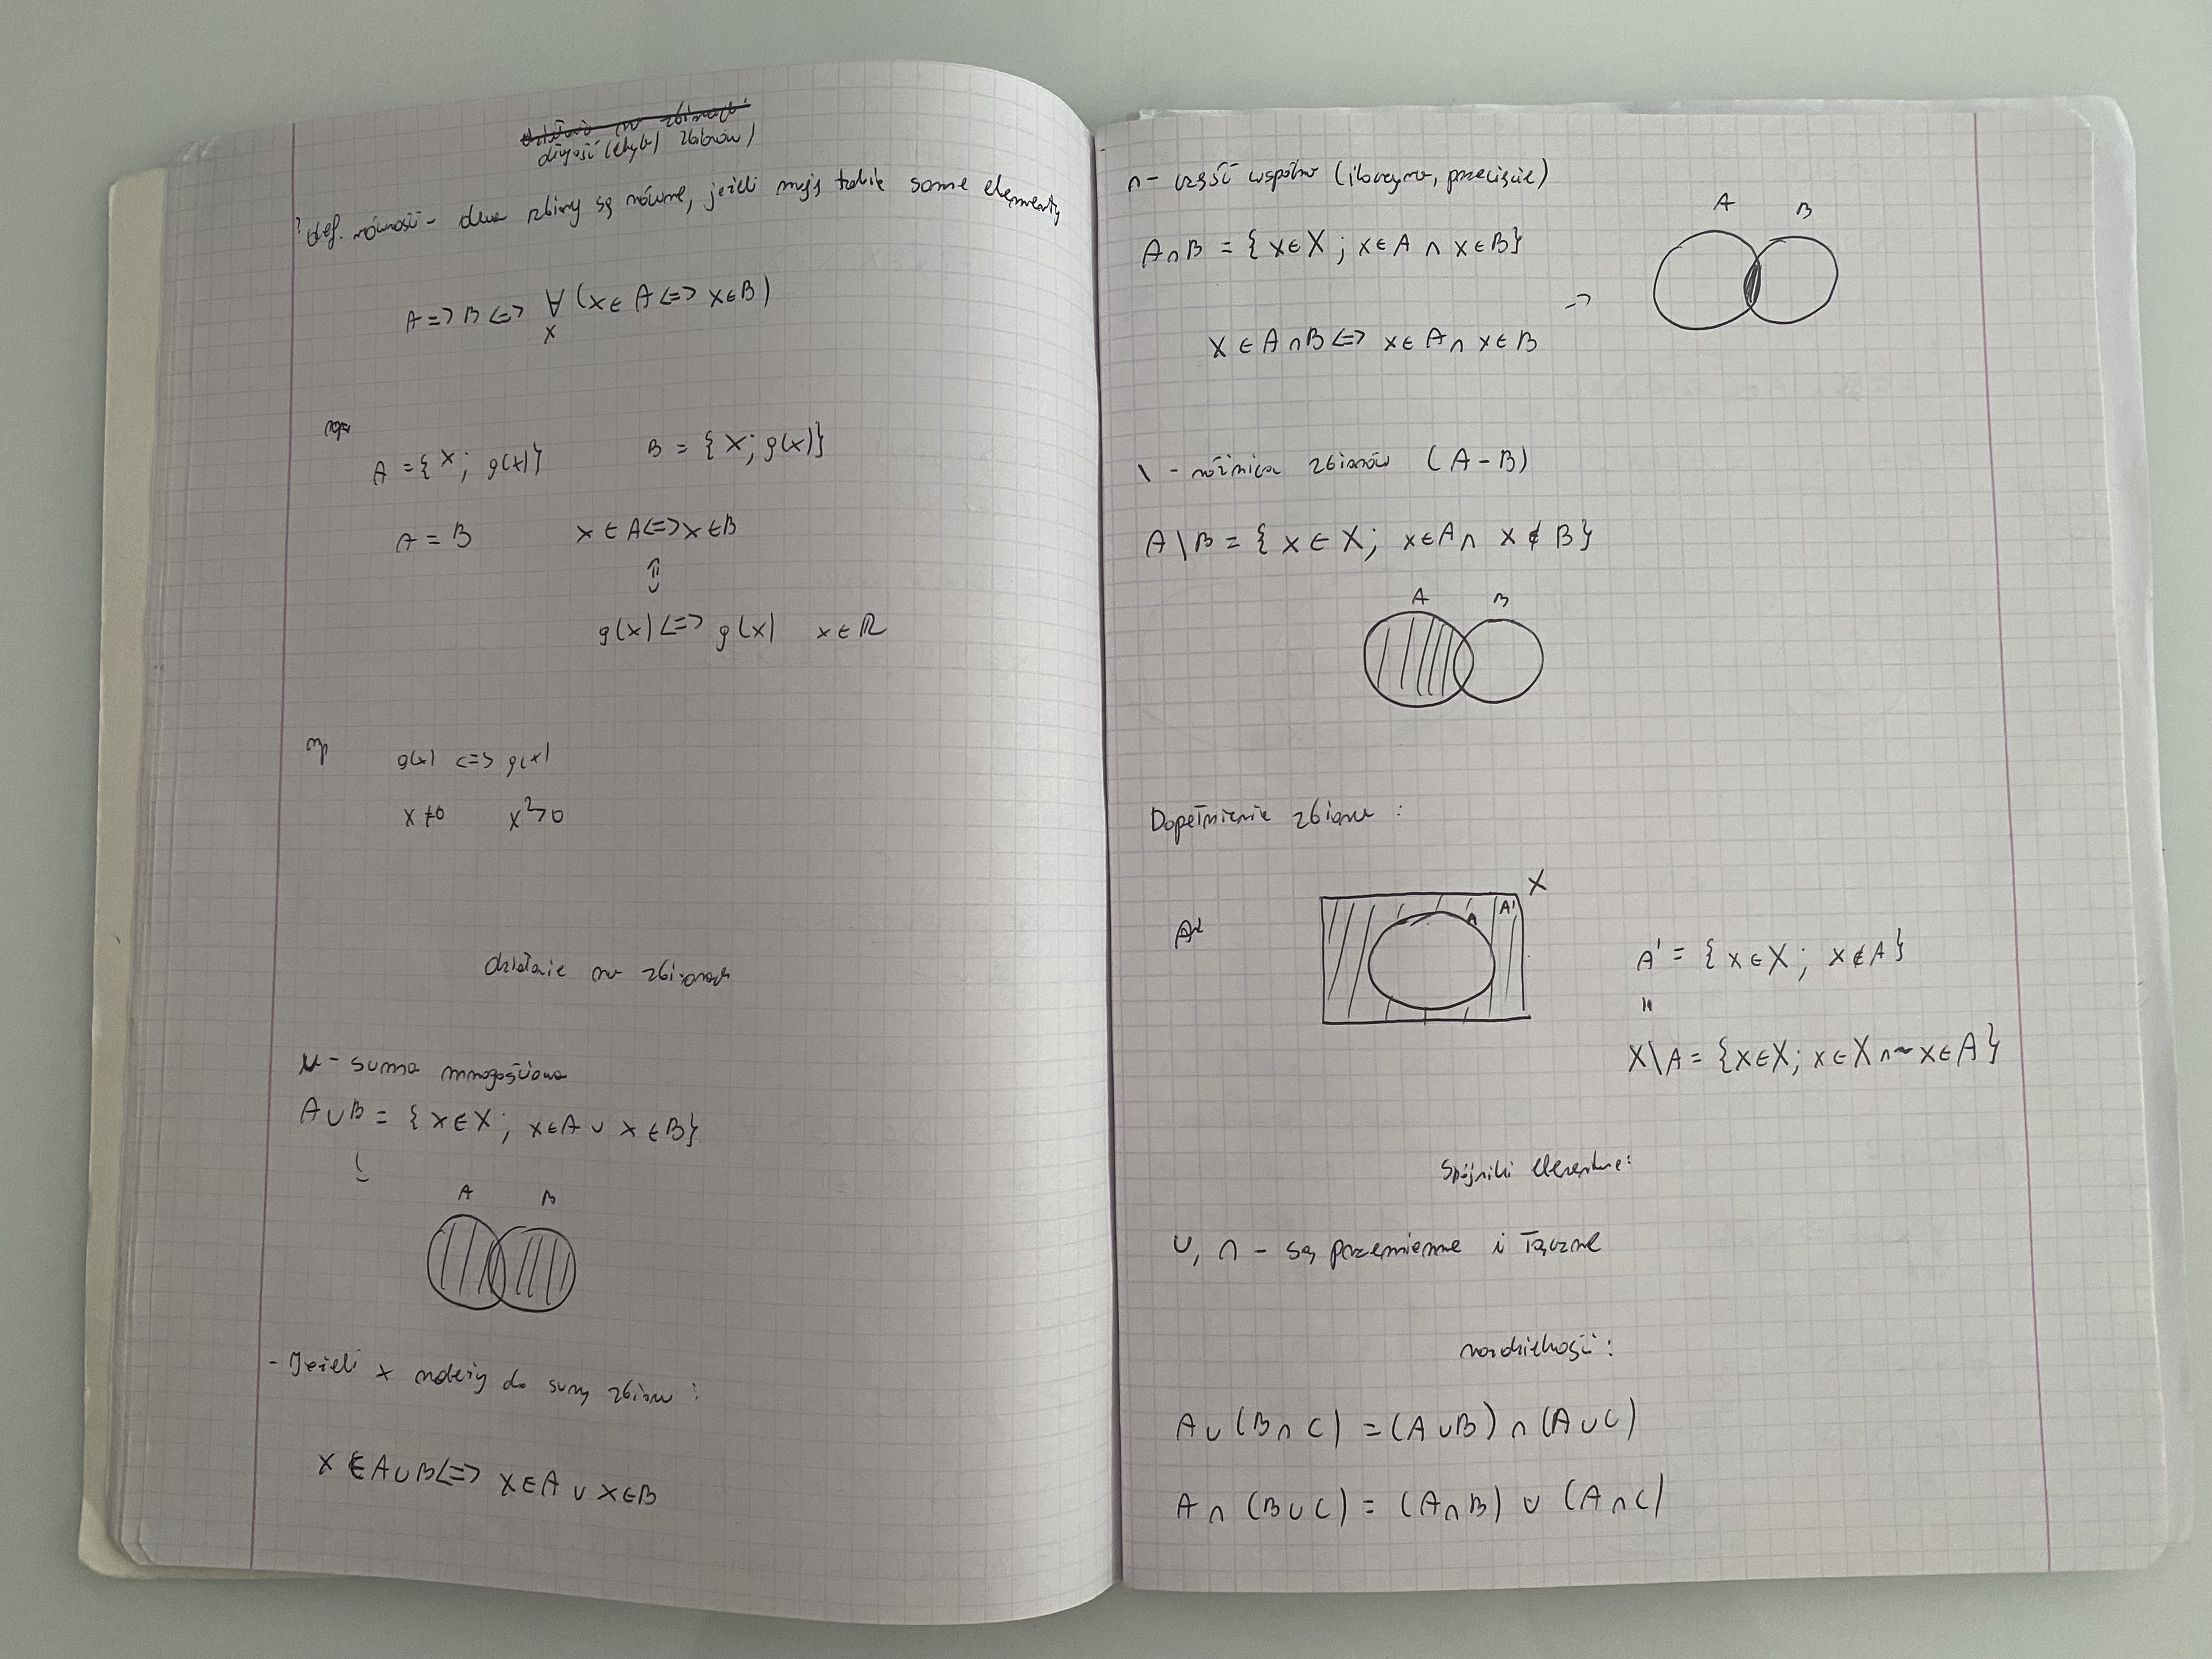 def. równość - dwa zbiory są równe, jeżeli mają takie same elementy
A => B <=> ∀ (x ∈ A <=> x ∈ B)
x
A = { x ; g(x) }  B = { x ; g(x) }
A = B  x ∈ A <=> x ∈ B
⇕
g(x) <=> g(x)  x ∈ ℝ
np
g(x) <=> g(x)
x ≠ 0  x² > 0
działanie na zbiorach
∪ - suma mnogościowa
A ∪ B = { x ∈ X ; x ∈ A ∪ x ∈ B }
A  B
- Jeżeli x należy do sumy zbioru :
x ∈ A ∪ B <=> x ∈ A ∪ x ∈ B
∩ - część wspólna (iloczyn, przecięcie)
A  B
A ∩ B = { x ∈ X ; x ∈ A ∩ x ∈ B }
->
x ∈ A ∩ B <=> x ∈ A ∩ x ∈ B
\ - różnica zbiorów (A - B)
A \ B = { x ∈ X ; x ∈ A ∩ x ∉ B }
A  B
Dopełnienie zbioru :
X
A'
A  A'
A' = { x ∈ X ; x ∉ A }
"
X \ A = { x ∈ X ; x ∈ X ∩ ~ x ∈ A }
Spójniki
∪, ∩ - są przemienne i łączne
rozdzielność :
A ∪ (B ∩ C) = (A ∪ B) ∩ (A ∪ C)
A ∩ (B ∪ C) = (A ∩ B) ∪ (A ∩ C)